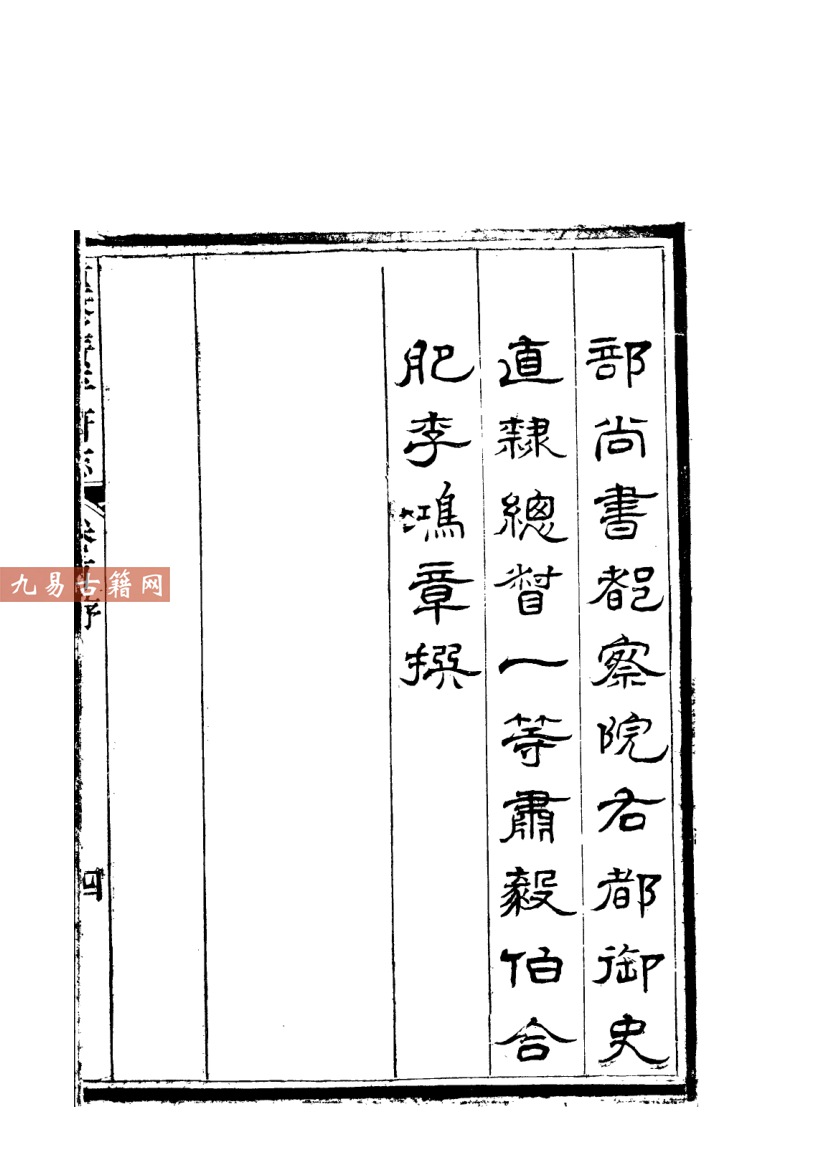 部尚書都察院右都御史
直隸總督一等肅毅伯合
肥李鴻章撰
四
九易古籍网